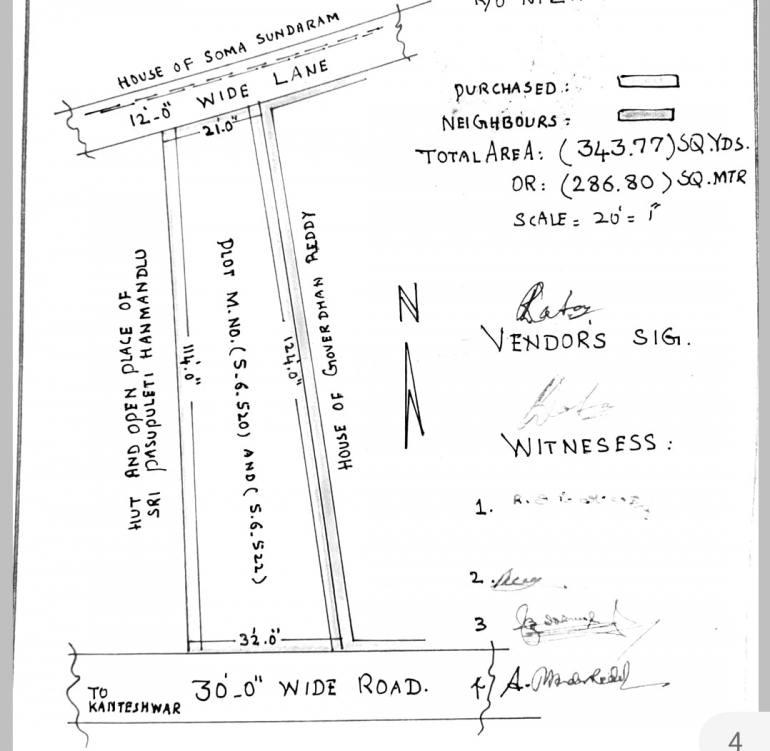 HOUSE OF SOMA SUNDARAM
12'-0" WIDE LANE
21'.0"
PURCHASED:
NEIGHBOURS:
TOTAL AREA: (343.77) SQ.YDS.
OR: (286.80) SQ.MTR
SCALE = 20' = 1"
HUT AND OPEN PLACE OF
SRI PASUPULETI HANMANDLU
114'.0"
PLOT M.NO.(5.6.520) AND (5.6.522)
124'.0"
HOUSE OF GOVERDHAN REDDY
N
VENDOR'S SIG.
WITNESESS:
1.
2.
3
4
32'.0"
TO
KANTESHWAR
30'-0" WIDE ROAD.
4